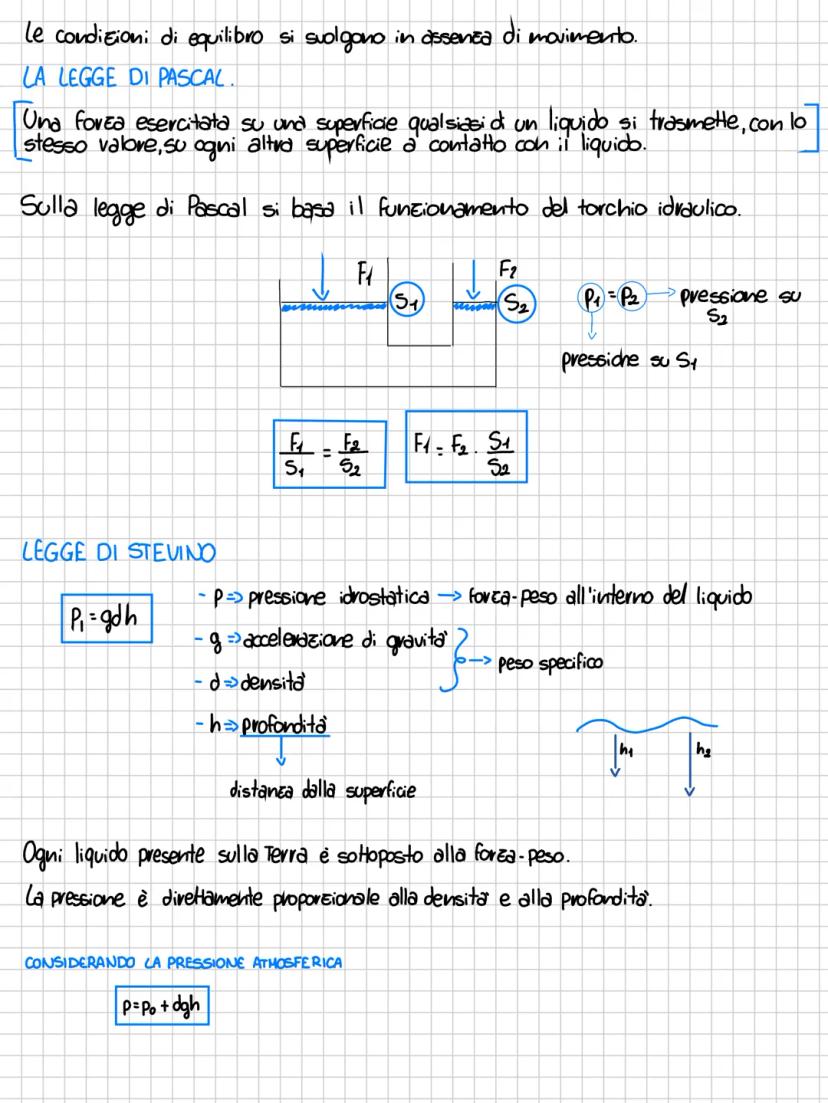 Le condizioni di equilibro si svolgono in assenza di movimento.
LA LEGGE DI PASCAL.
Una forza esercitata su una superficie qualsiasi di un liquido si trasmette, con lo
stesso valore, su ogni altra superficie a contatto con il liquido.
Sulla legge di Pascal si basa il funzionamento del torchio idraulico.
F1 F2
S1 S2 P1 = P2 → pressione su
S2
pressione su S1
F1/S1 = F2/S2 F1 = F2 · S1/S2
LEGGE DI STEVINO
P1 = gdh
- P => pressione idrostatica → forza-peso all'interno del liquido
- g => accelerazione di gravità
→ peso specifico
- d => densità
- h => profondità
h1 h2
distanza dalla superficie
Ogni liquido presente sulla Terra è sottoposto alla forza-peso.
La pressione è direttamente proporzionale alla densità e alla profondità.
CONSIDERANDO LA PRESSIONE ATMOSFERICA
P = P0 + dgh